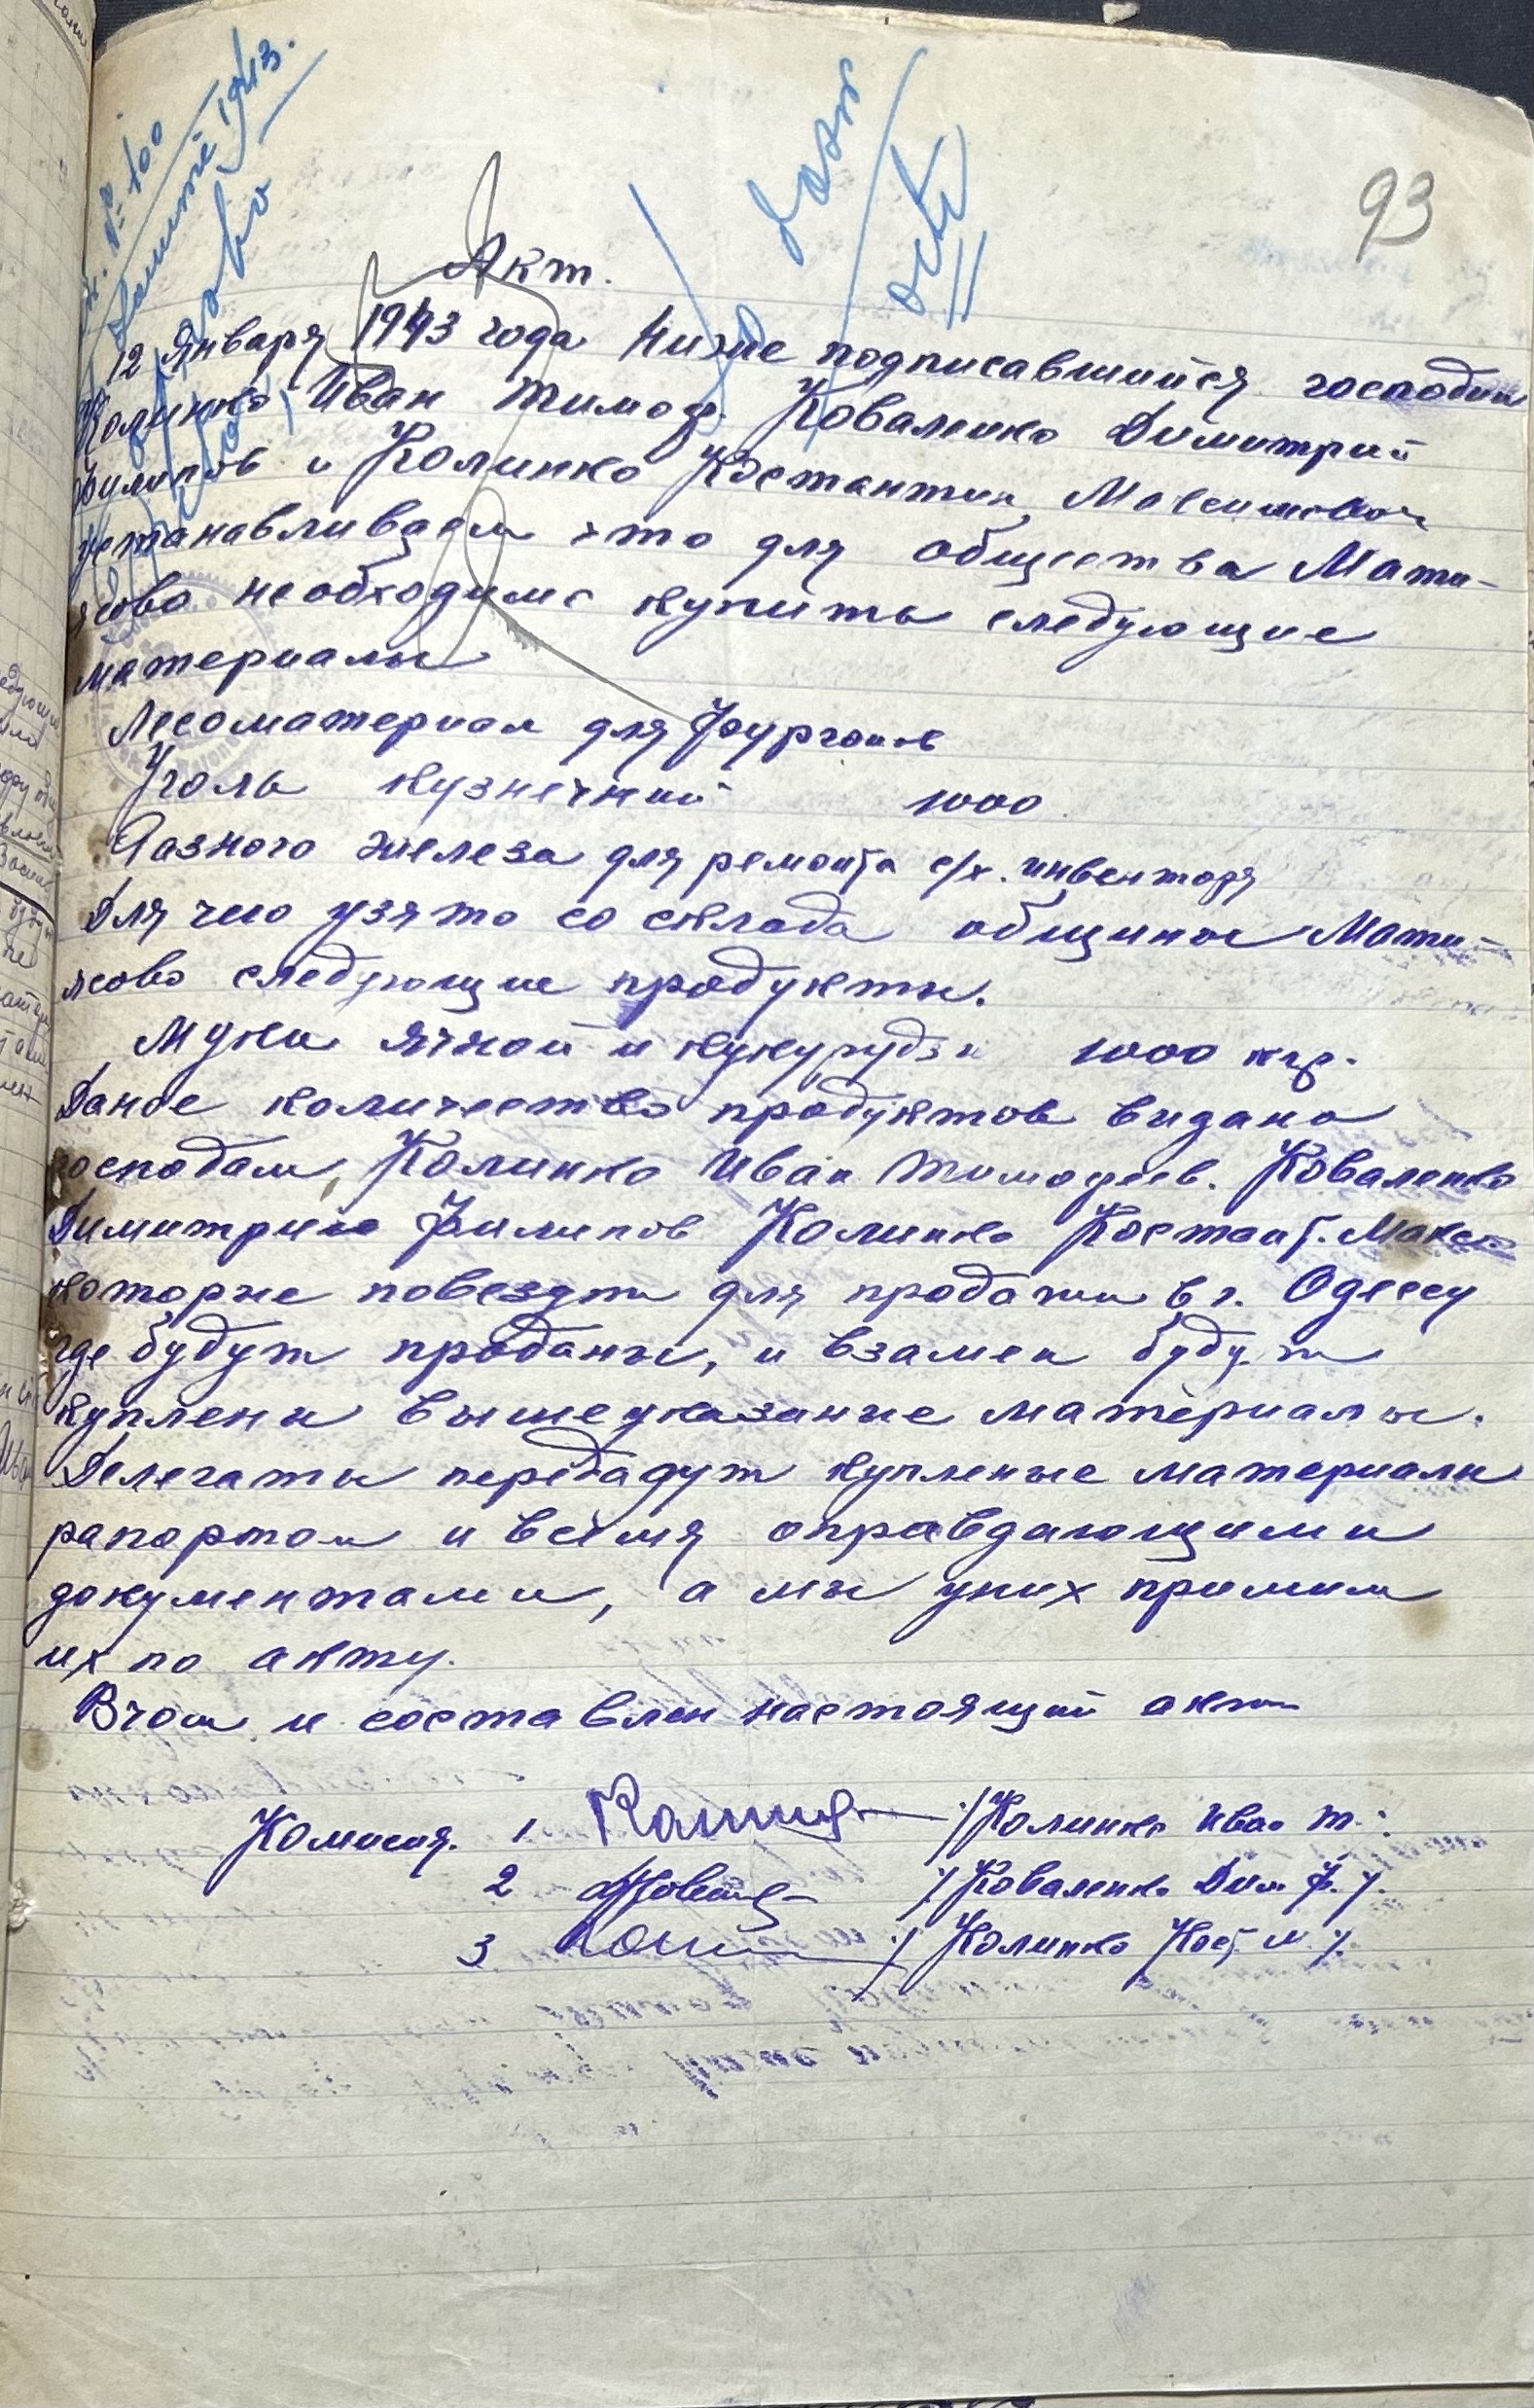 № 100
1943.
93
Акт.
12 Января 1943 года Ниже подписавшийся господин
Колинко Иван Тимоф. Коваленко Димитрий
Филипов и Колинко Костантин Максимович
устанавливаем что для общества Мати-
ясово необходимо купить следующие
материалы
Лесоматериал для Фургонов
Уголь кузнечный 1000
Разного железа для ремонта с/х. инвенторя
Для чего узято со склада общины Мати-
ясово следующие продукты.
Муки ячной и кукурудзы 1000 кгр.
Даное количество продуктов видано
господам Колинко Иван Тимофеев. Коваленко
Димитрию Филипов Колинко Костант. Макси
которые повезут для продажи в г. Одессу
где будут проданы, и взамен будут
куплены вышеуказаные материалы.
Делегаты передадут купленые материалы
рапортом и всемя оправдающими
документами, а мы уних примим
их по акту.
Вчом и составлен настоящий акт
Комисия. 1 /Колинко Иван Т.
2 /Коваленко Дим. Ф./.
3 / Колинко Кост. М./.